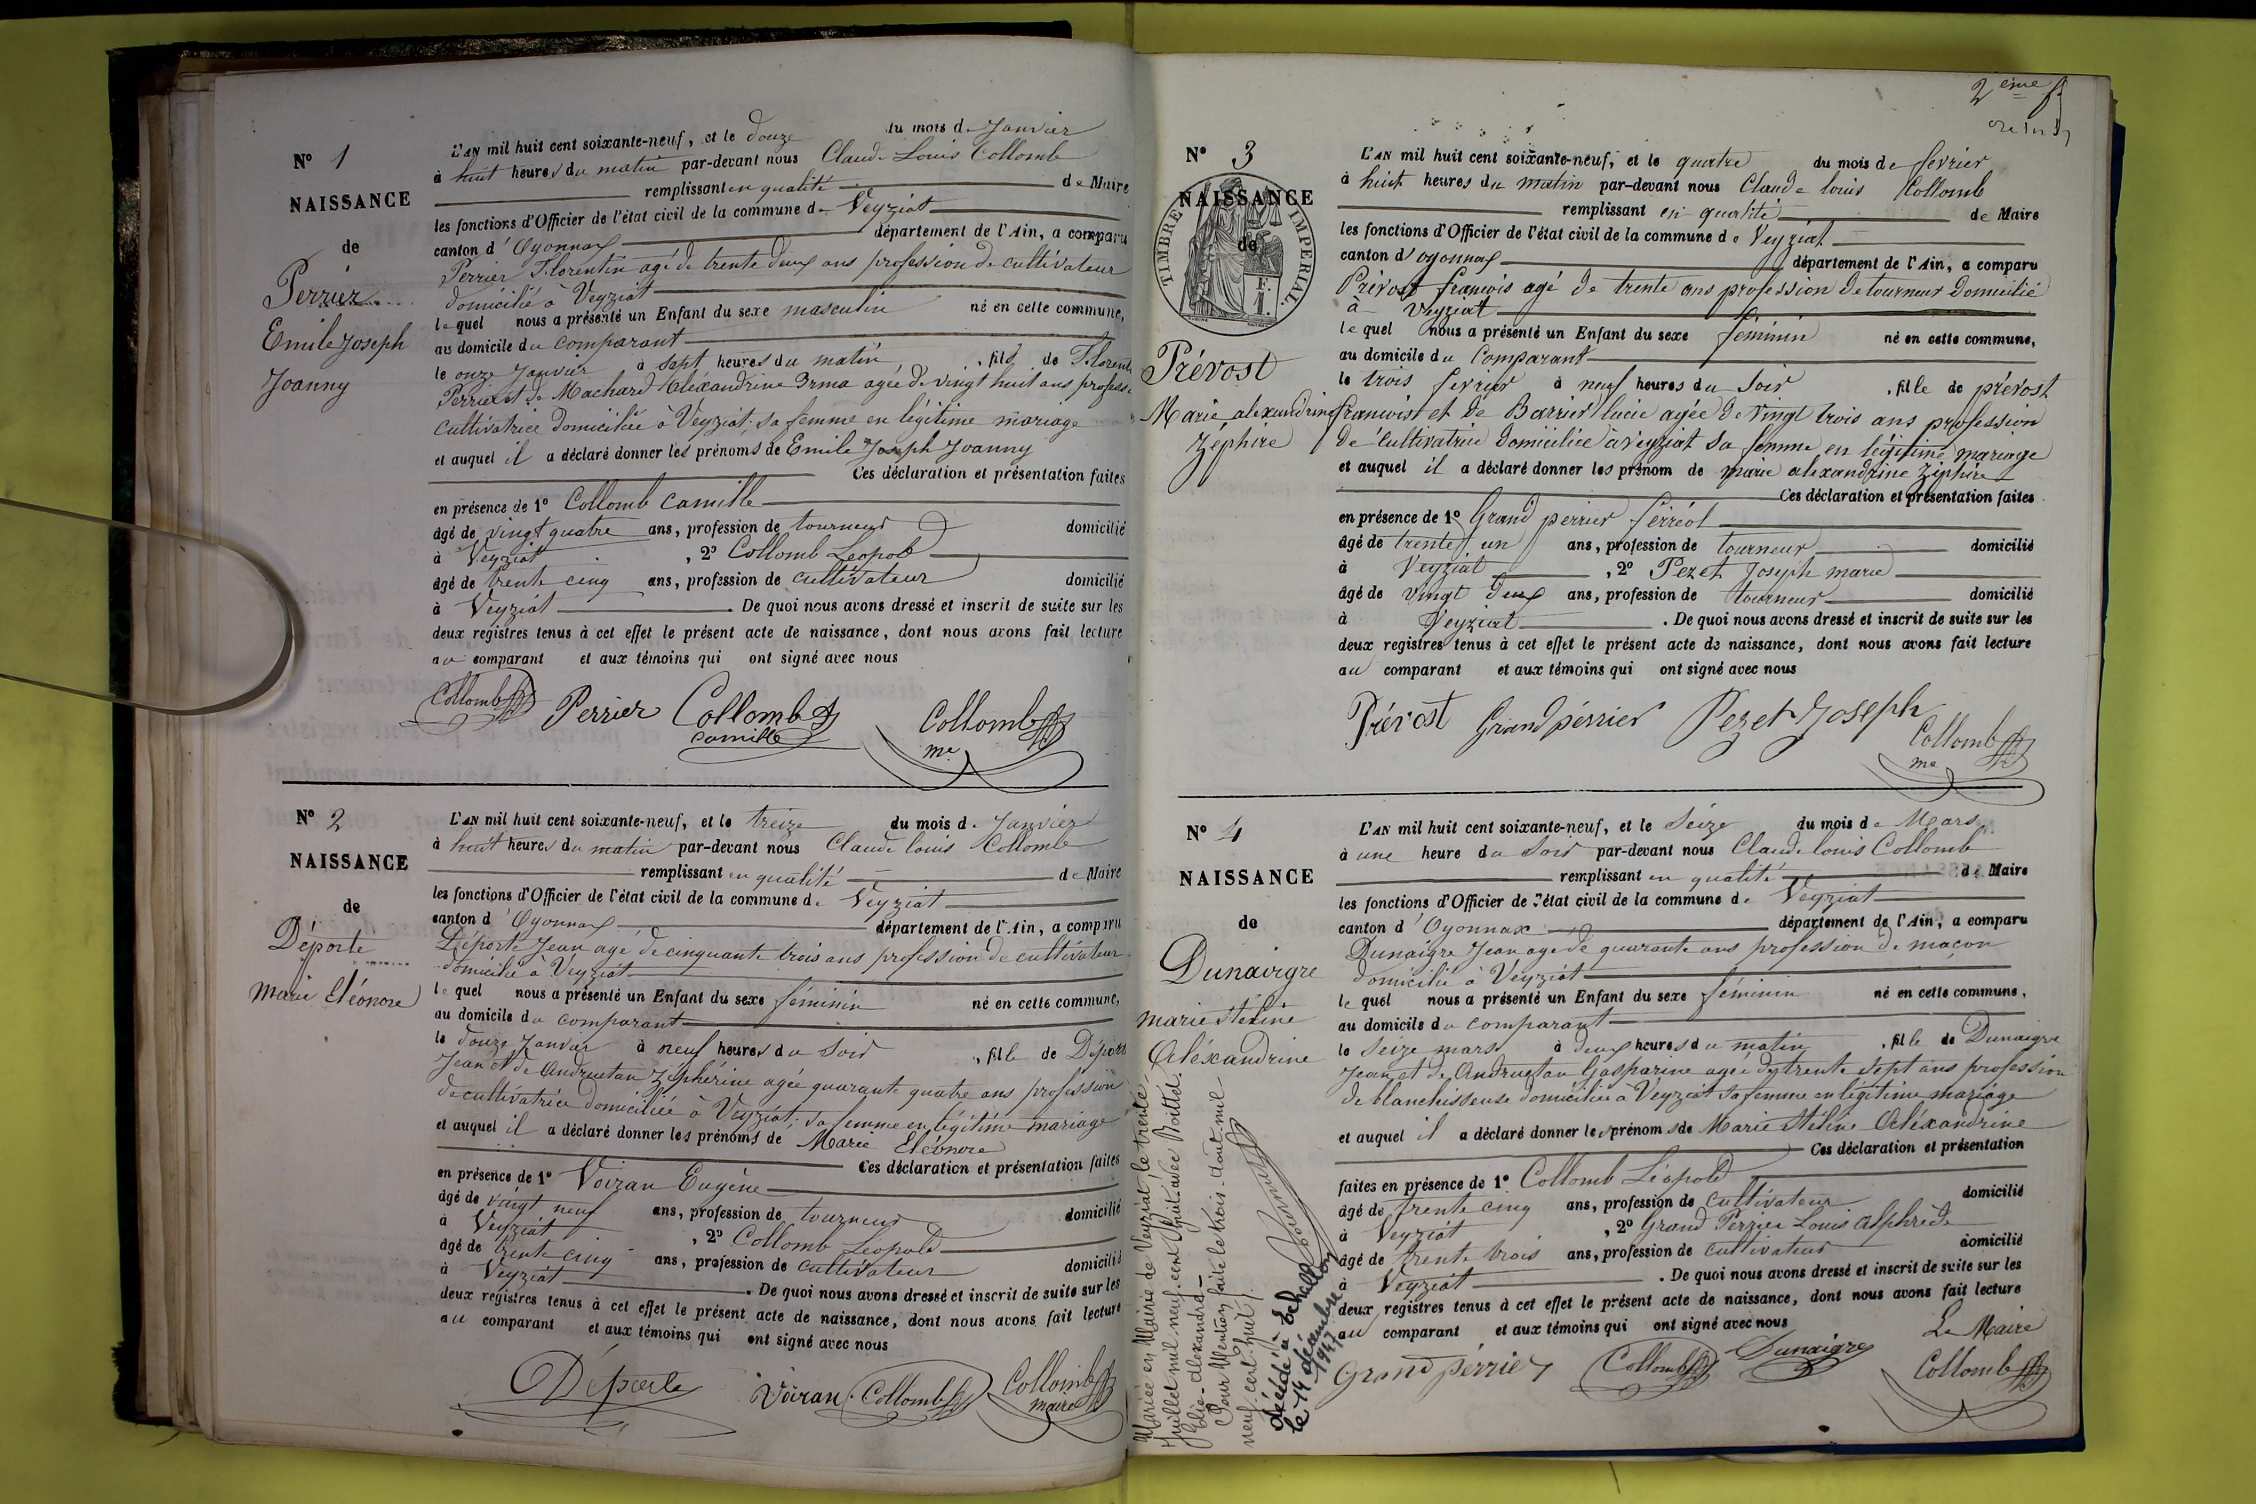 N° 1
NAISSANCE
de
Perrier
Emile Joseph
Joanny
L'AN mil huit cent soixante-neuf, et le douze du mois de Janvier
à huit heures du matin par-devant nous Claude Louis Collomb
remplissant en qualité de Maire
les fonctions d'Officier de l'état civil de la commune de Veyziat
canton d'Oyonnax département de l'Ain, a comparu
Perrier Florentin agé de trente deux ans profession de cultivateur
domicilié à Veyziat
lequel nous a présenté un Enfant du sexe masculin né en cette commune,
au domicile du comparant
le onze Janvier à sept heures du matin, fils de Florentin
Perrier et de Machard Aléxandrine Irma agée de vingt huit ans profession
cultivatrice domiciliée à Veyziat, sa femme en légitime mariage
et auquel il a déclaré donner les prénoms de Emile Joseph Joanny
Ces déclaration et présentation faites
en présence de 1° Collomb Camille
âgé de vingt quatre ans, profession de tourneur domicilié
à Veyziat, 2° Collomb Léopold
âgé de trente cinq ans, profession de cultivateur domicilié
à Veyziat. De quoi nous avons dressé et inscrit de suite sur les
deux registres tenus à cet effet le présent acte de naissance, dont nous avons fait lecture
au comparant et aux témoins qui ont signé avec nous
Collomb Perrier Collomb Collomb
Camille me
N° 2
NAISSANCE
de
Déporte
Marie Eléonore
L'AN mil huit cent soixante-neuf, et le treize du mois de Janvier
à huit heures du matin par-devant nous Claude Louis Collomb
remplissant en qualité de Maire
les fonctions d'Officier de l'état civil de la commune de Veyziat
canton d'Oyonnax département de l'Ain, a comparu
Déporte Jean agé de cinquante trois ans profession de cultivateur
domicilié à Veyziat
lequel nous a présenté un Enfant du sexe féminin né en cette commune,
au domicile du comparant
le douze Janvier à neuf heures du soir, fille de Déporte
Jean et de Andruetan Zéphérine agée quarante quatre ans profession
de cultivatrice domiciliée à Veyziat, sa femme en légitime mariage
et auquel il a déclaré donner les prénoms de Marie Eléonore
Ces déclaration et présentation faites
en présence de 1° Voiran Eugène
âgé de vingt neuf ans, profession de tourneur domicilié
à Veyziat, 2° Collomb Léopold
âgé de trente cinq ans, profession de cultivateur domicilié
à Veyziat. De quoi nous avons dressé et inscrit de suite sur les
deux registres tenus à cet effet le présent acte de naissance, dont nous avons fait lecture
au comparant et aux témoins qui ont signé avec nous
Déporte Voiran Collomb Collomb
maire
2eme f
N° 3
NAISSANCE
de
TIMBRE IMPERIAL
1 F.
Prévost
Marie alexandrine
Zéphire
L'AN mil huit cent soixante-neuf, et le quatre du mois de février
à huit heures du matin par-devant nous Claude louis Collomb
remplissant en qualité de Maire
les fonctions d'Officier de l'état civil de la commune de Veyziat
canton d'oyonnax département de l'Ain, a comparu
Prévost francois agé de trente ans profession de tourneur domicilié
à Veyziat
lequel nous a présenté un Enfant du sexe féminin né en cette commune,
au domicile du comparant
le trois fevrier à neuf heures du soir, fille de prévost
francois et de Barrier lucie agée de vingt trois ans profession
de cultivatrice domiciliée à veyziat sa femme en légitime mariage
et auquel il a déclaré donner les prénom de marie alexandrine Ziphire
Ces déclaration et présentation faites
en présence de 1° Grand perrier férréol
âgé de trente un ans, profession de tourneur domicilié
à Veyziat, 2° Pezet Joseph marie
âgé de vingt deux ans, profession de tourneur domicilié
à Veyziat. De quoi nous avons dressé et inscrit de suite sur les
deux registres tenus à cet effet le présent acte de naissance, dont nous avons fait lecture
au comparant et aux témoins qui ont signé avec nous
Prévost Grand pérrier Pezet Joseph Collomb
me
N° 4
NAISSANCE
de
Dunaigre
marie stéline
Aléxandrine
L'AN mil huit cent soixante-neuf, et le seize du mois de Mars
à une heure du soir par-devant nous Claude louis Collomb
remplissant en qualité de Maire
les fonctions d'Officier de l'état civil de la commune de Veyziat
canton d'Oyonnax département de l'Ain, a comparu
Dunaigre Jean agé de quarante ans profession de maçon
domicilié à Veyziat
lequel nous a présenté un Enfant du sexe féminin né en cette commune,
au domicile du comparant
le seize mars à deux heures du matin, fille de Dunaigre
Jean et de Andruetan Gasparine agée de trente sept ans profession
de blanchisseuse domiciliée à Veyziat sa femme en légitime mariage
et auquel il a déclaré donner les prénoms de Marie Stéline Aléxandrine
Ces déclaration et présentation
faites en présence de 1° Collomb Léopold
âgé de trente cinq ans, profession de cultivateur domicilié
à Veyziat, 2° Grand Perrier Louis Alphrède
âgé de trente trois ans, profession de cultivateur domicilié
à Veyziat. De quoi nous avons dressé et inscrit de suite sur les
deux registres tenus à cet effet le présent acte de naissance, dont nous avons fait lecture
au comparant et aux témoins qui ont signé avec nous
Le Maire
Grand pérrier Collomb Dunaigre Collomb
Mariée en Mairie de Veyziat le trente
Juillet mil neuf cent huit avec Poittel
Elie-Alexandre-
Pour Mention faite le trois Août mil
neuf cent huit.
décédé à Echallon
le 14 décembre
1947